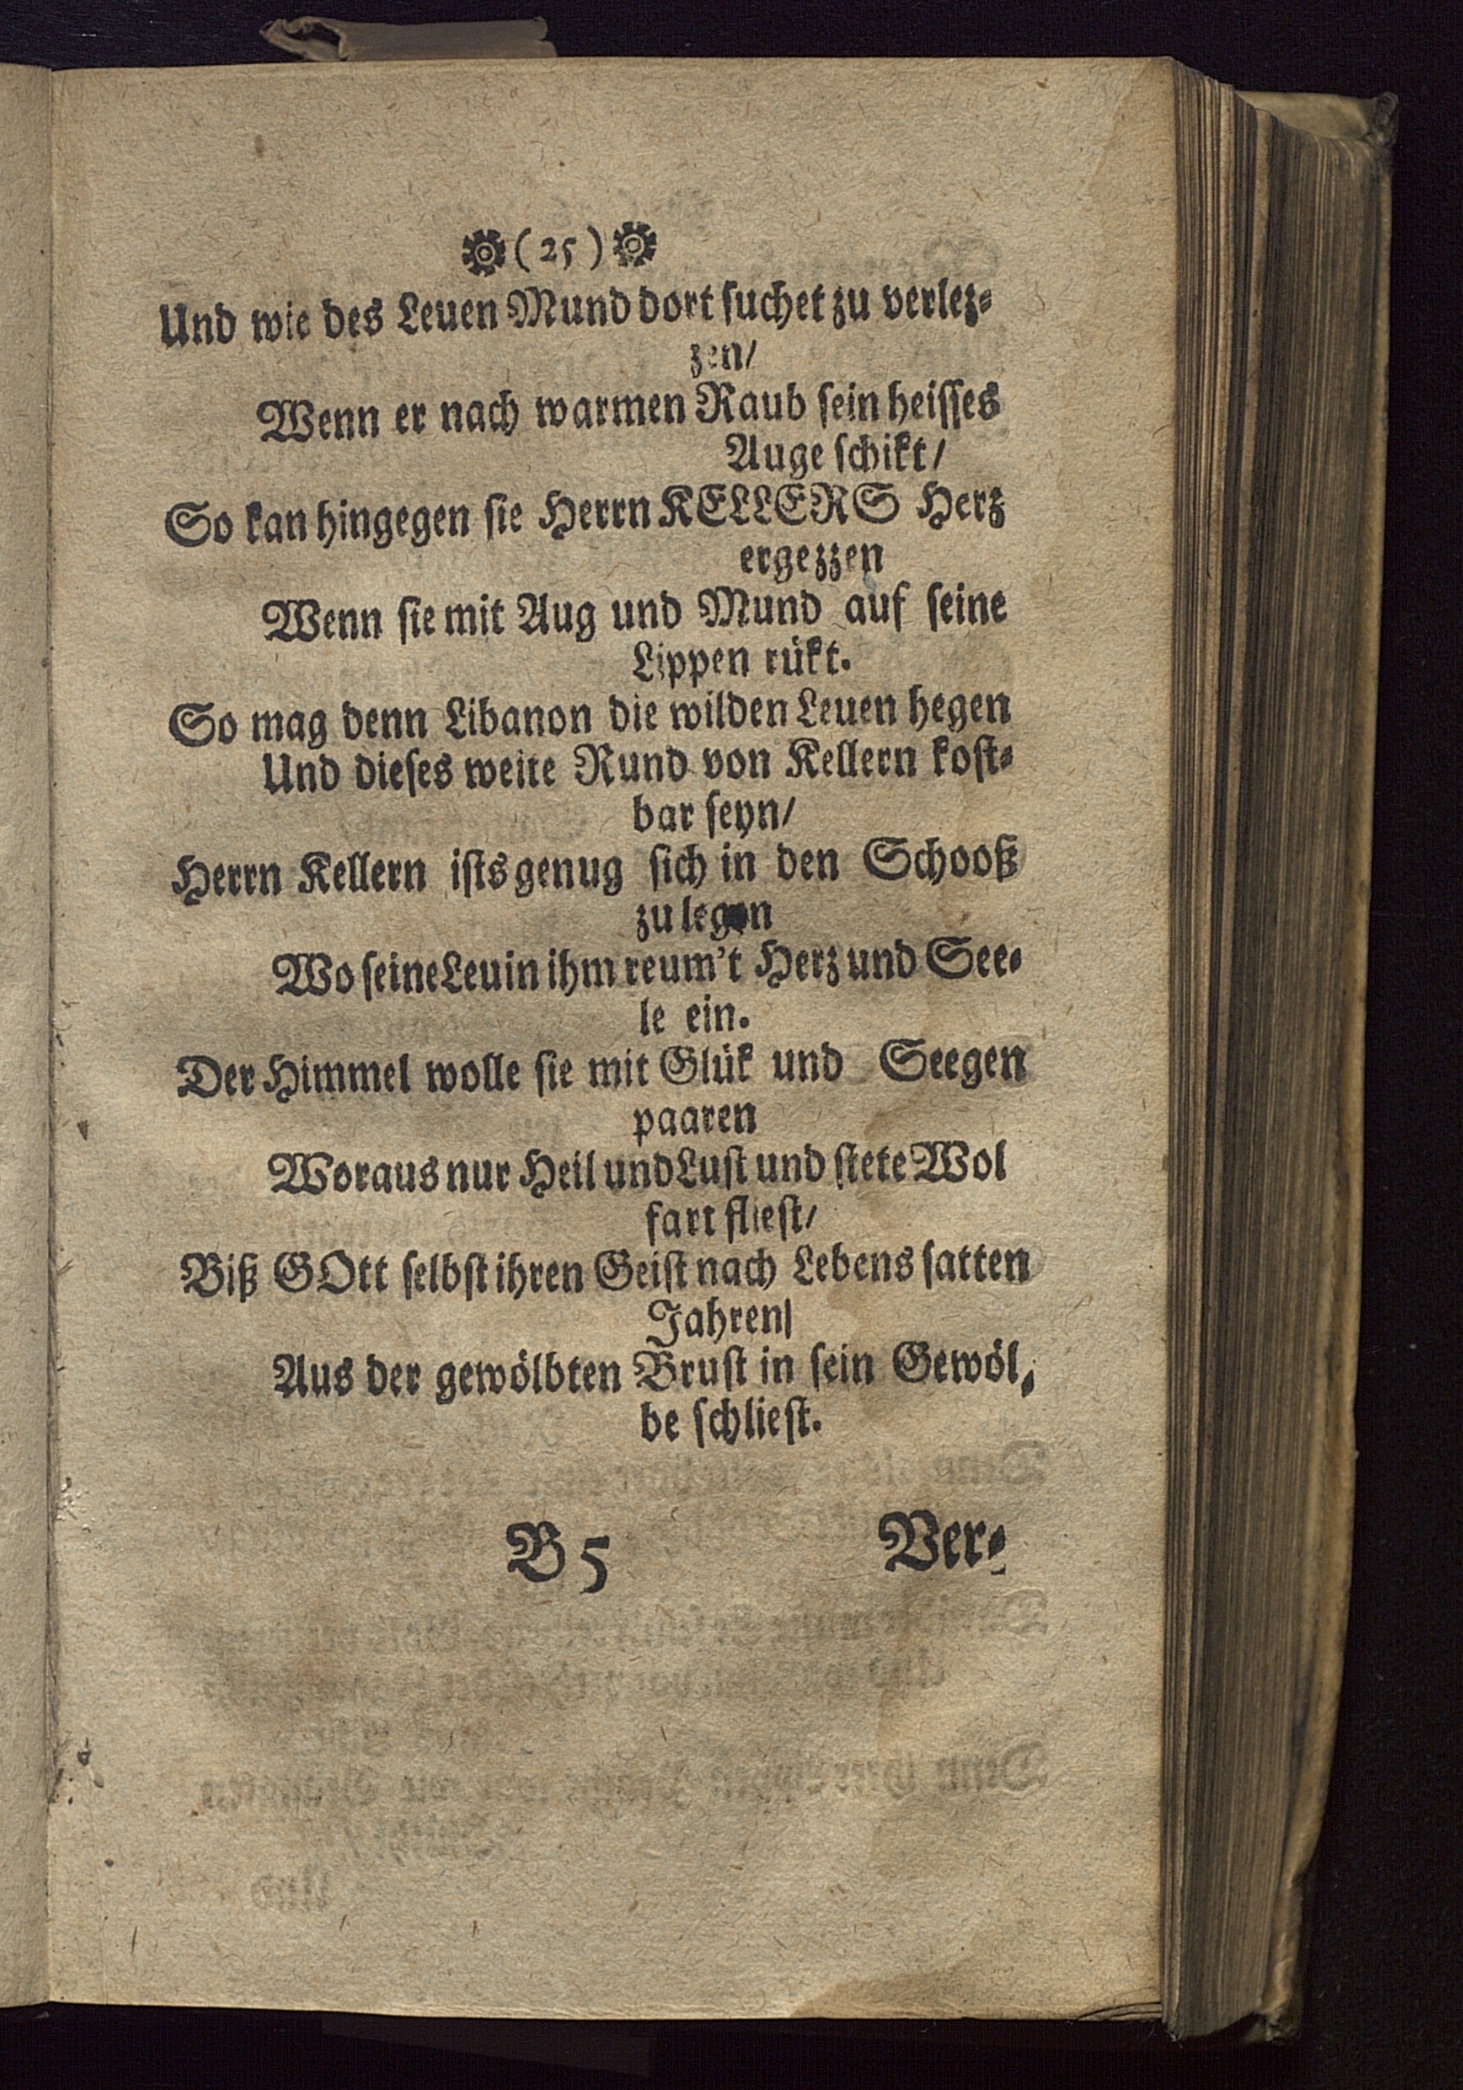 (25)
Und wie des Leuen Mund dort suchet zu verlez-
zen/
Wenn er nach warmen Raub sein heisses
Auge schikt/
So kan hingegen sie Herrn KELLERS Herz
ergezzen
Wenn sie mit Aug und Mund auf seine
Lippen rükt.
So mag denn Libanon die wilden Leuen hegen
Und dieses weite Rund von Kellern kost-
bar seyn/
Herrn Kellern ists genug sich in den Schooß
zu legen
Wo seine Leuin ihm reum't Herz und See-
le ein.
Der Himmel wolle sie mit Glük und Seegen
paaren
Woraus nur Heil und Lust und stete Wol
fart fliest/
Biß GOtt selbst ihren Geist nach Lebens satten
Jahren/
Aus der gewölbten Brust in sein Gewöl-
be schliest.
B 5 Ver-